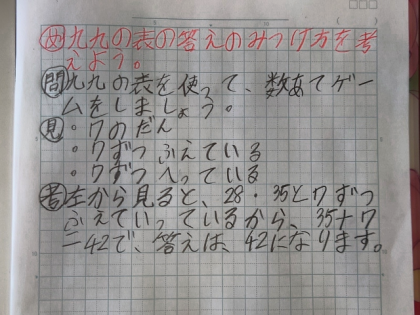 め 九九の表の答えのみつけ方を考
えよう。
問 九九の表を使って、数あてゲー
ムをしましょう。
見 ・7のだん
・7ずつふえている
・7ずつへっている
考 左から見ると、28・35と7ずつ
ふえていっているから、35+7
=42で、答えは、42になります。